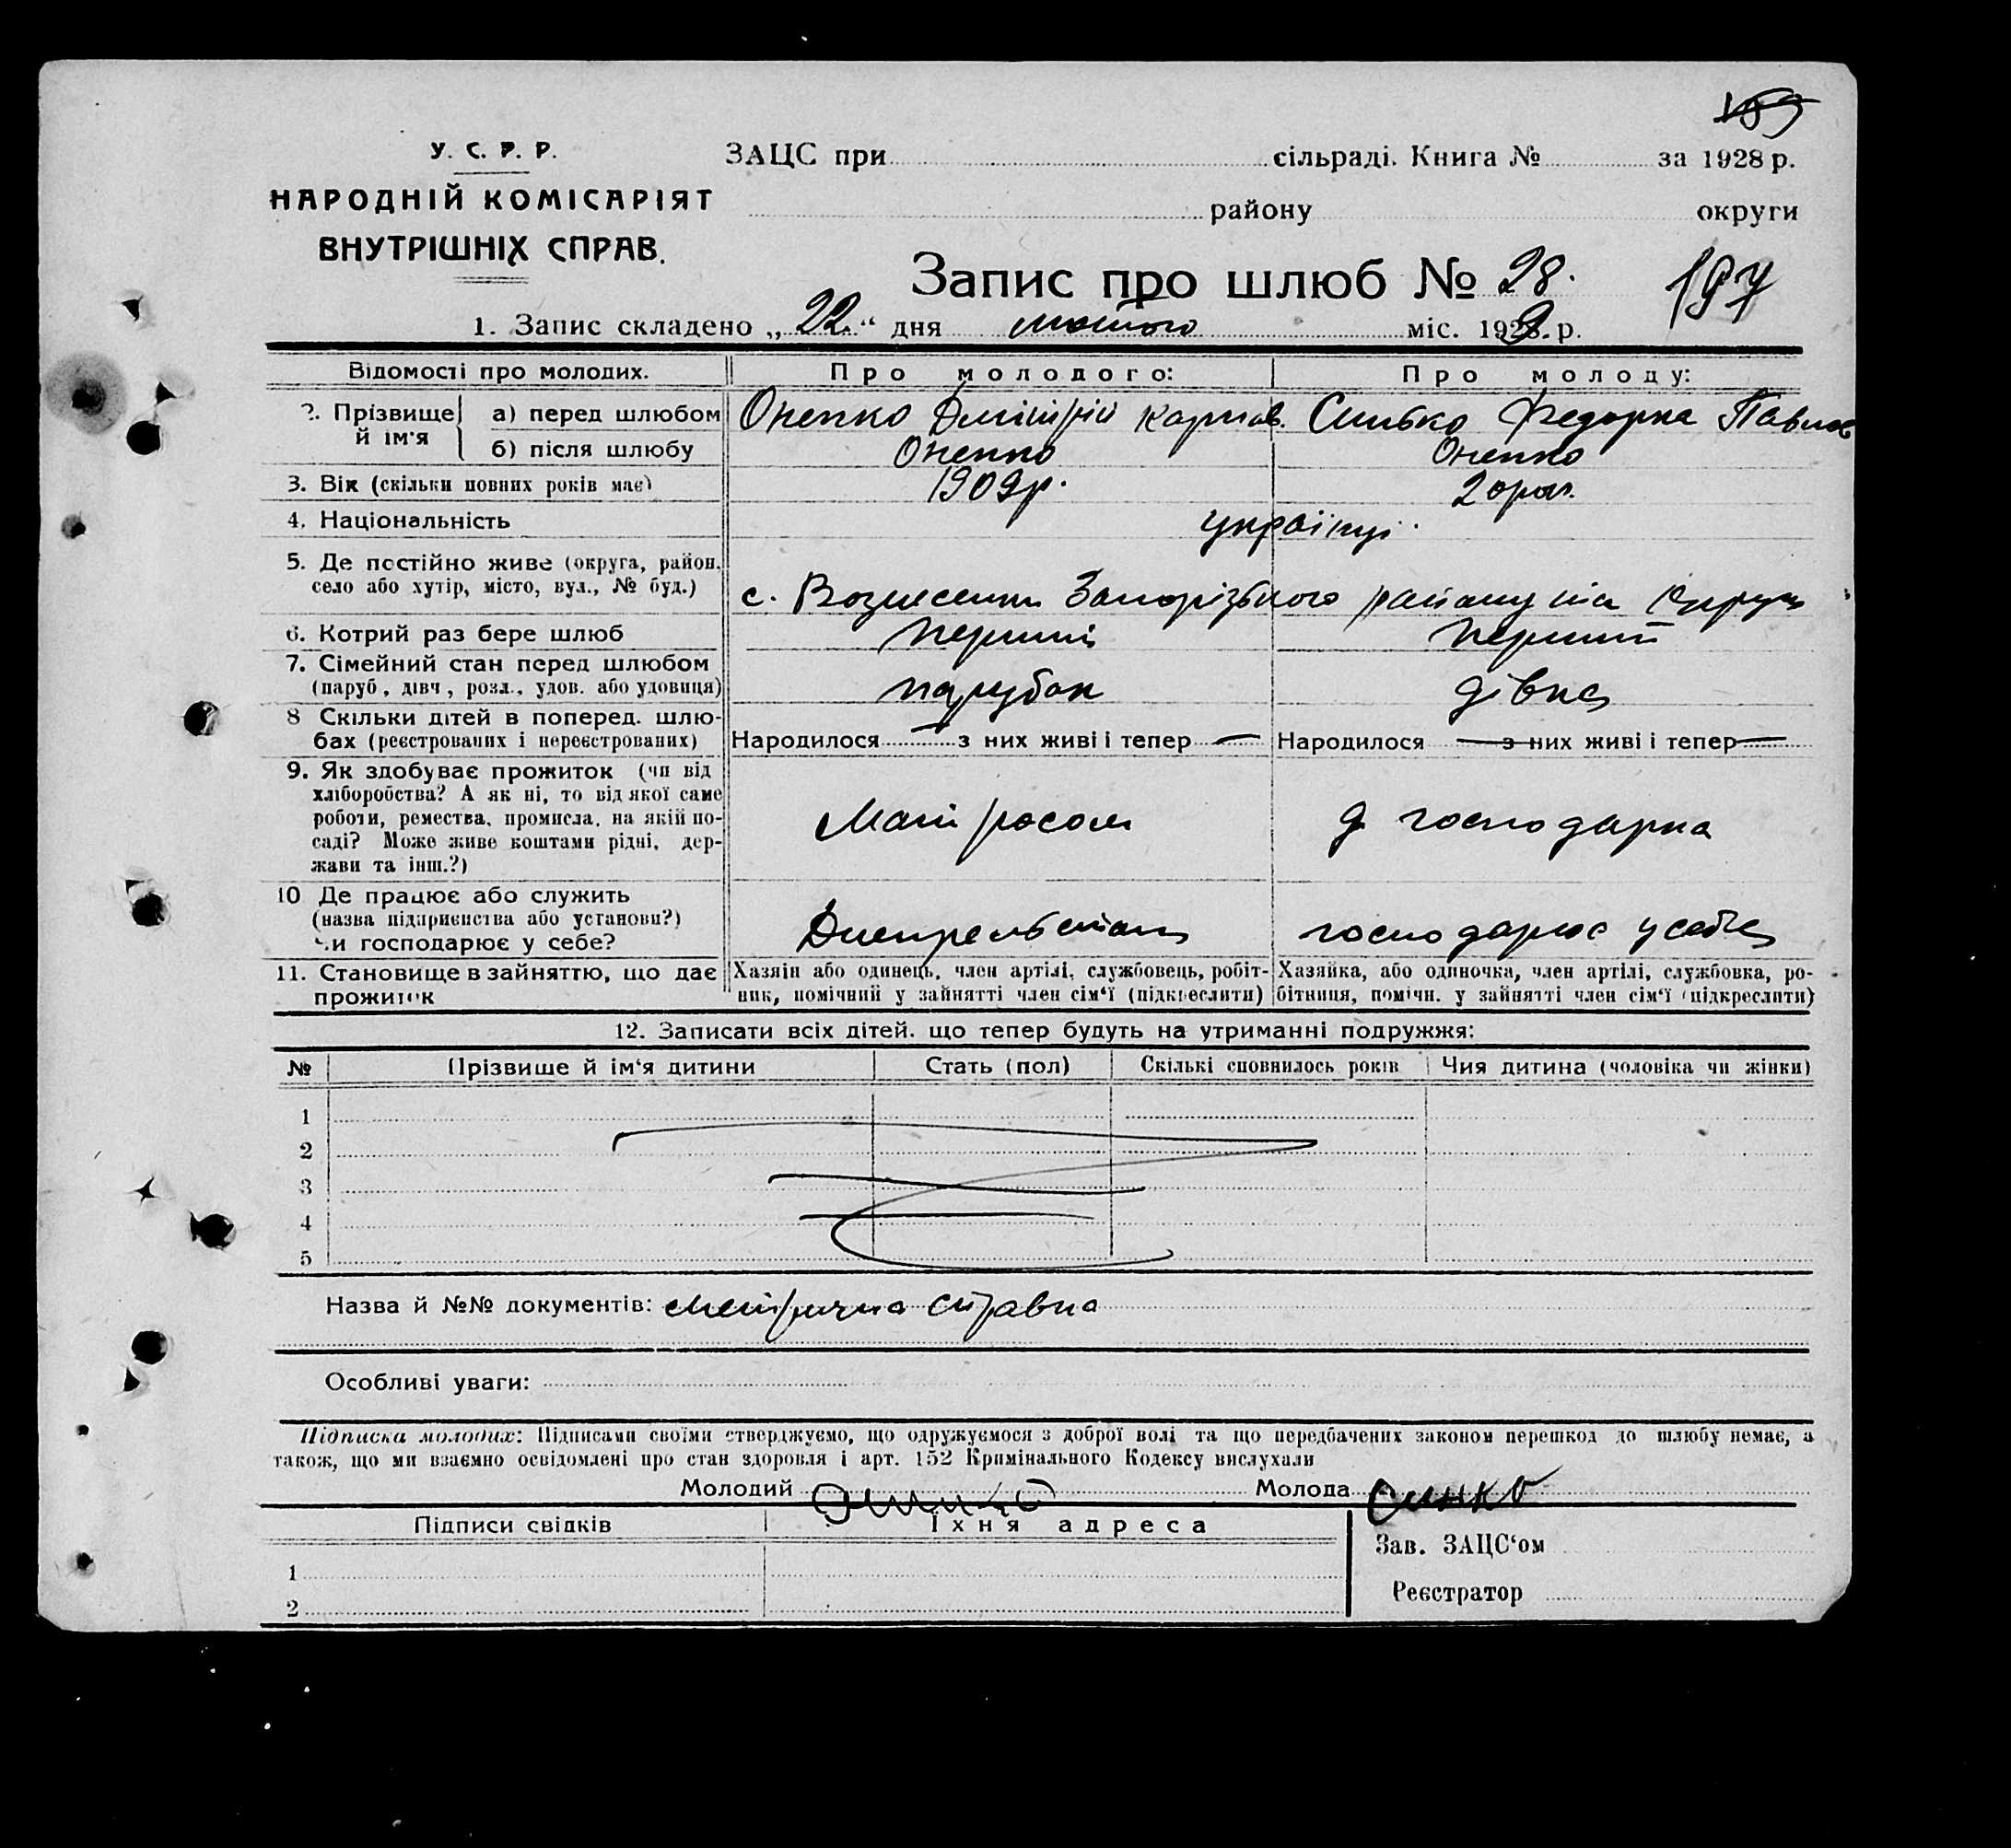 У. С. Р. Р.
НАРОДНІЙ КОМІСАРІЯТ
ВНУТРІШНІХ СПРАВ.
ЗАЦС при сільраді. Книга № за 1928 р.
району округи
Запис про шлюб № 28. 197
1. Запис складено „22“ дня лютого міс. 1929 р.
Відомості про молодих. Про молодого: Про молоду:
2. Прізвище й ім'я а) перед шлюбом Оненко Дмітрій Карпов. Синько Федорка Павлов
б) після шлюбу Оненко Оненко
3. Вік (скільки повних років має) 1909р. 20рок.
4. Національність українці
5. Де постійно живе (округа, район, село або хутір, місто, вул., № буд.) с. Вознесенки Запорізького району та Округи
6. Котрий раз бере шлюб перший перший
7. Сімейний стан перед шлюбом (паруб., дівч., розл., удов. або удовиця) парубок дівка
8 Скільки дітей в поперед. шлюбах (реєстрованих і нереєстрованих) Народилося — з них живі і тепер — Народилося — з них живі і тепер —
9. Як здобуває прожиток (чи від хліборобства? А як ні, то від якої саме роботи, ремества, промисла, на якій посаді? Може живе коштами рідні, держави та інш.?) Матросом д господарка
10 Де працює або служить (назва підприємства або установи?) чи господарює у себе? Днепрельстан господарює у себе
11. Становище в зайняттю, що дає прожиток
Хазяїн або одинець, член артілі, службовець, робітник, помічний у зайнятті член сім'ї (підкреслити)
Хазяйка, або одиночка, член артілі, службовка, робітниця, помічн. у зайнятті член сім'ї (підкреслити)
12. Записати всіх дітей, що тепер будуть на утриманні подружжя:
№ Прізвище й ім'я дитини Стать (пол) Скількі сповнилось років Чия дитина (чоловіка чи жінки)
1
2
3
4
5
Назва й №№ документів: метрична справка
Особливі уваги:
Підписка молодих: Підписами своїми стверджуємо, що одружуємося з доброї волі та що передбачених законом перешкод до шлюбу немає, а
також, що ми взаємно освідомлені про стан здоровля і арт. 152 Кримінального Кодексу вислухали
Молодий Молода Синко
Підписи свідків Їхня адреса
Зав. ЗАЦС'ом
1
Реєстратор
2